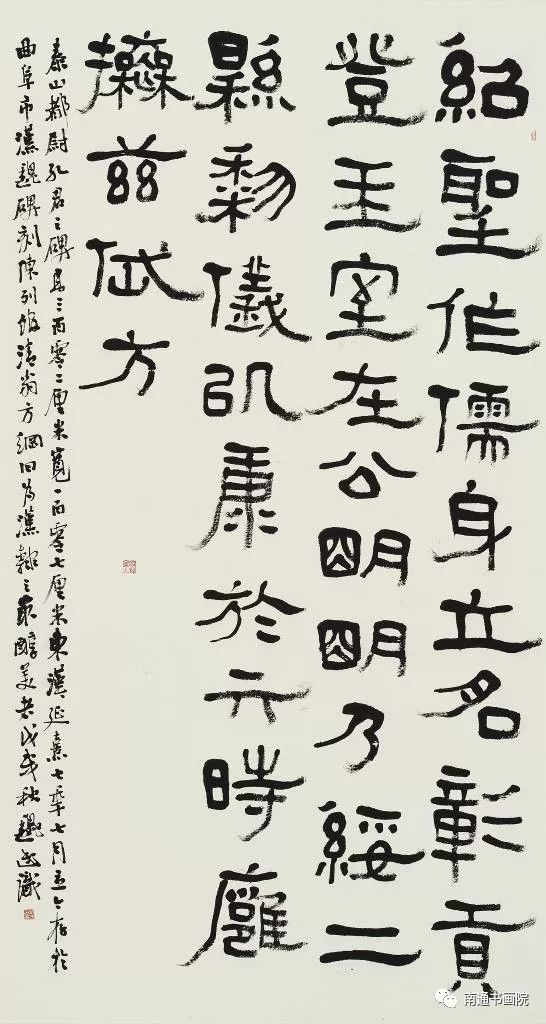 紹聖作儒身立名彰貢
登王室在公明明乃綏二
縣黎儀以康於亓時廱
撫茲岱方
泰山都尉孔君之碑高三百零二厘米寬一百零七厘米東漢延熹七年七月立今存於
曲阜市漢魏碑刻陳列館清翁方綱曰為漢隸之最醇美者戊戌秋識
南通书画院